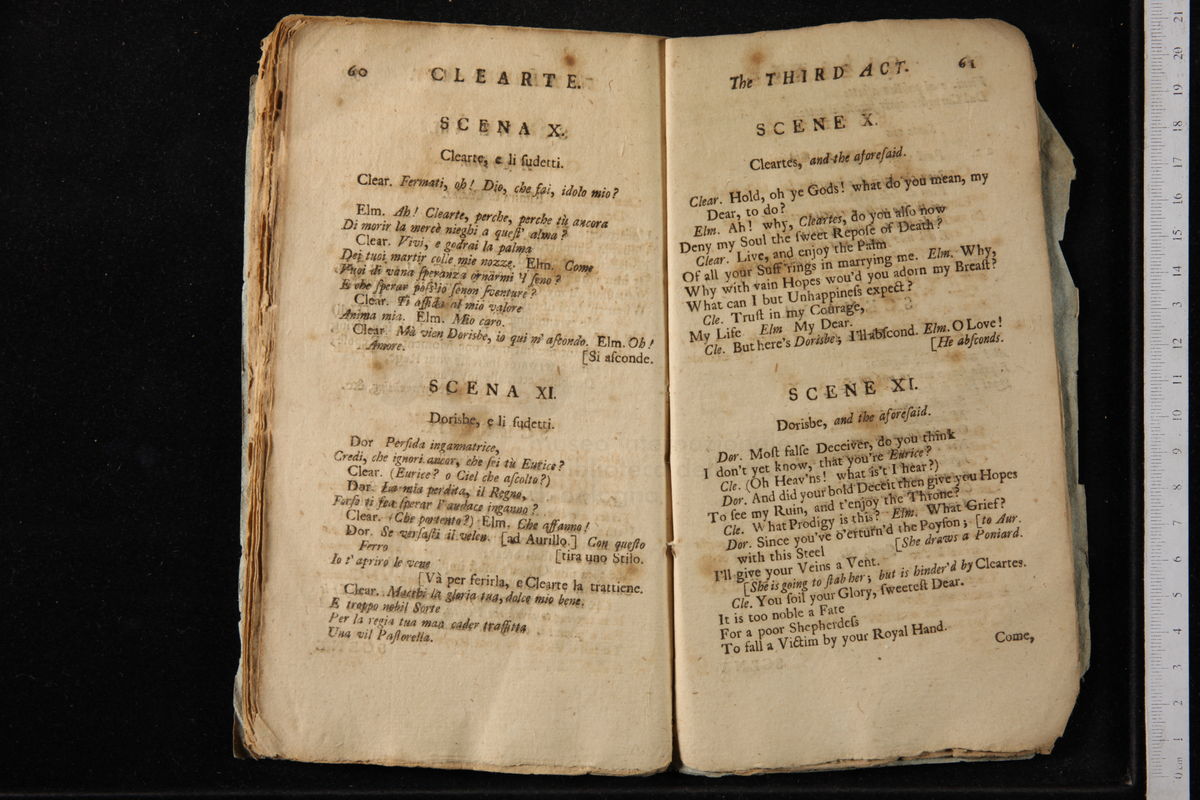 60 CLEARTE.
SCENA X.
Clearte, e li ſudetti.
Clear. Fermati, oh! Dio, che fai, idolo mio?
Elm. Ah! Clearte, perche, perche tù ancora
Di morir la mercè nieghi a queſt' alma?
Clear. Vivi, e godrai la palma
Dei tuoi martir colle mie nozze. Elm. Come
Vuoi di vana ſperanza ornarmi 'l ſeno?
E che ſperar poſſ'io ſenon ſventure?
Clear. Ti affida al mio valore
Anima mia. Elm. Mio caro.
Clear. Mà vien Dorisbe, io qui m' aſcondo. Elm. Oh!
Amore. [Si aſconde.
SCENA XI.
Dorisbe, e li ſudetti.
Dor Perfida ingannatrice,
Credi, che ignori ancor, che ſei tù Eurice?
Clear. (Eurice? o Ciel che aſcolto?)
Dor. La mia perdita, il Regno,
Forſi ti fea ſperar l'audace inganno?
Clear. (Che portento?) Elm. Che affanno!
Dor. Se verſaſti il velen [ad Aurillo.] Con queſto
Ferro [tira uno Stilo.
Io t'apriro le vene
[Và per ferirla, e Clearte la trattiene.
Clear. Macchi la gloria tua, dolce mio bene.
E troppo nobil Sorte
Per la regia tua man cader traffitta
Una vil Paſtorella.
The THIRD ACT. 61
SCENE X.
Cleartes, and the aforeſaid.
Clear. Hold, oh ye Gods! what do you mean, my
Dear, to do?
Elm. Ah! why, Cleartes, do you alſo now
Deny my Soul the ſweet Repoſe of Death?
Clear. Live, and enjoy the Palm
Of all your Suff'rings in marrying me. Elm. Why,
Why with vain Hopes wou'd you adorn my Breaſt?
What can I but Unhappineſs expect?
Cle. Truſt in my Courage,
My Life Elm My Dear.
Cle. But here's Dorisbe; I'll abſcond. Elm. O Love!
[He abſconds.
SCENE XI.
Dorisbe, and the aforeſaid.
Dor. Moſt falſe Deceiver, do you think
I don't yet know, that you're Eurice?
Cle. (Oh Heav'ns! what is't I hear?)
Dor. And did your bold Deceit then give you Hopes
To ſee my Ruin, and t'enjoy the Throne?
Cle. What Prodigy is this? Elm. What Grief?
Dor. Since you've o'erturn'd the Poyſon; [to Aur.
with this Steel [She draws a Poniard.
I'll give your Veins a Vent.
[She is going to ſtab her; but is hinder'd by Cleartes.
Cle. You ſoil your Glory, ſweeteſt Dear.
It is too noble a Fate
For a poor Shepherdeſs
To fall a Victim by your Royal Hand.
Come,
0 cm 1 2 3 4 5 6 7 8 9 10 11 12 13 14 15 16 17 18 19 20 21